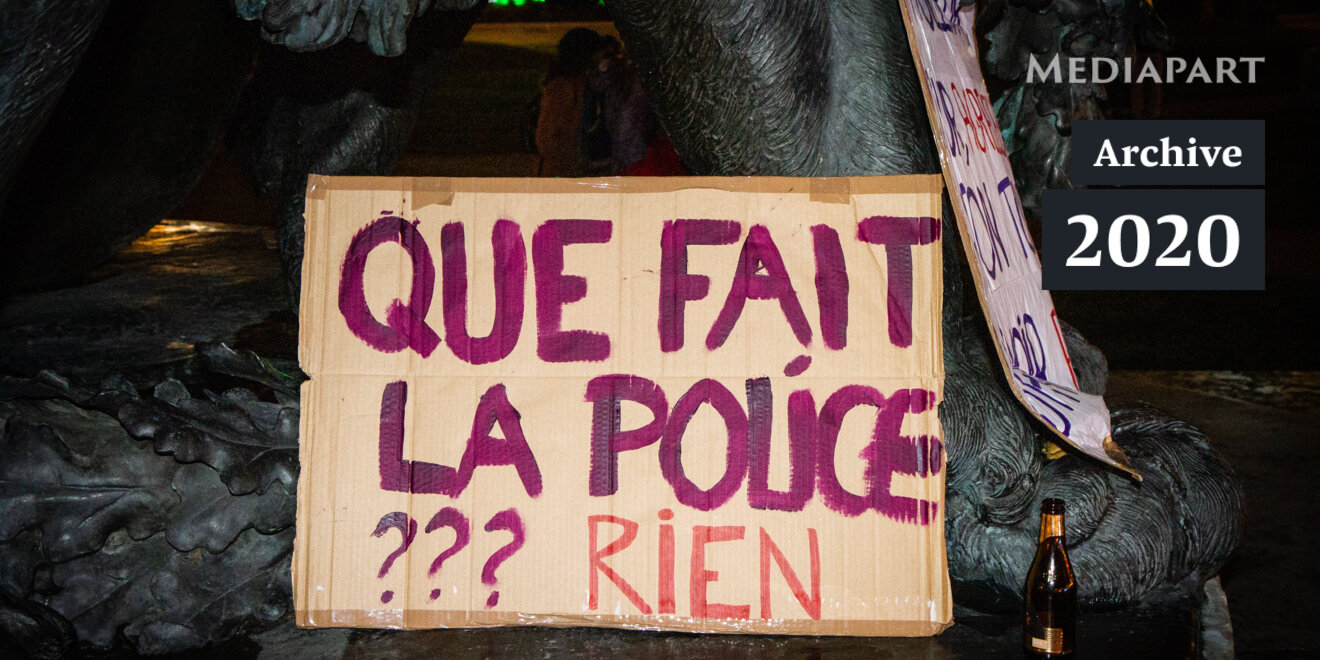 MEDIAPART
Archive
2020
QUE FAIT
LA POLiCE
??? RiEN